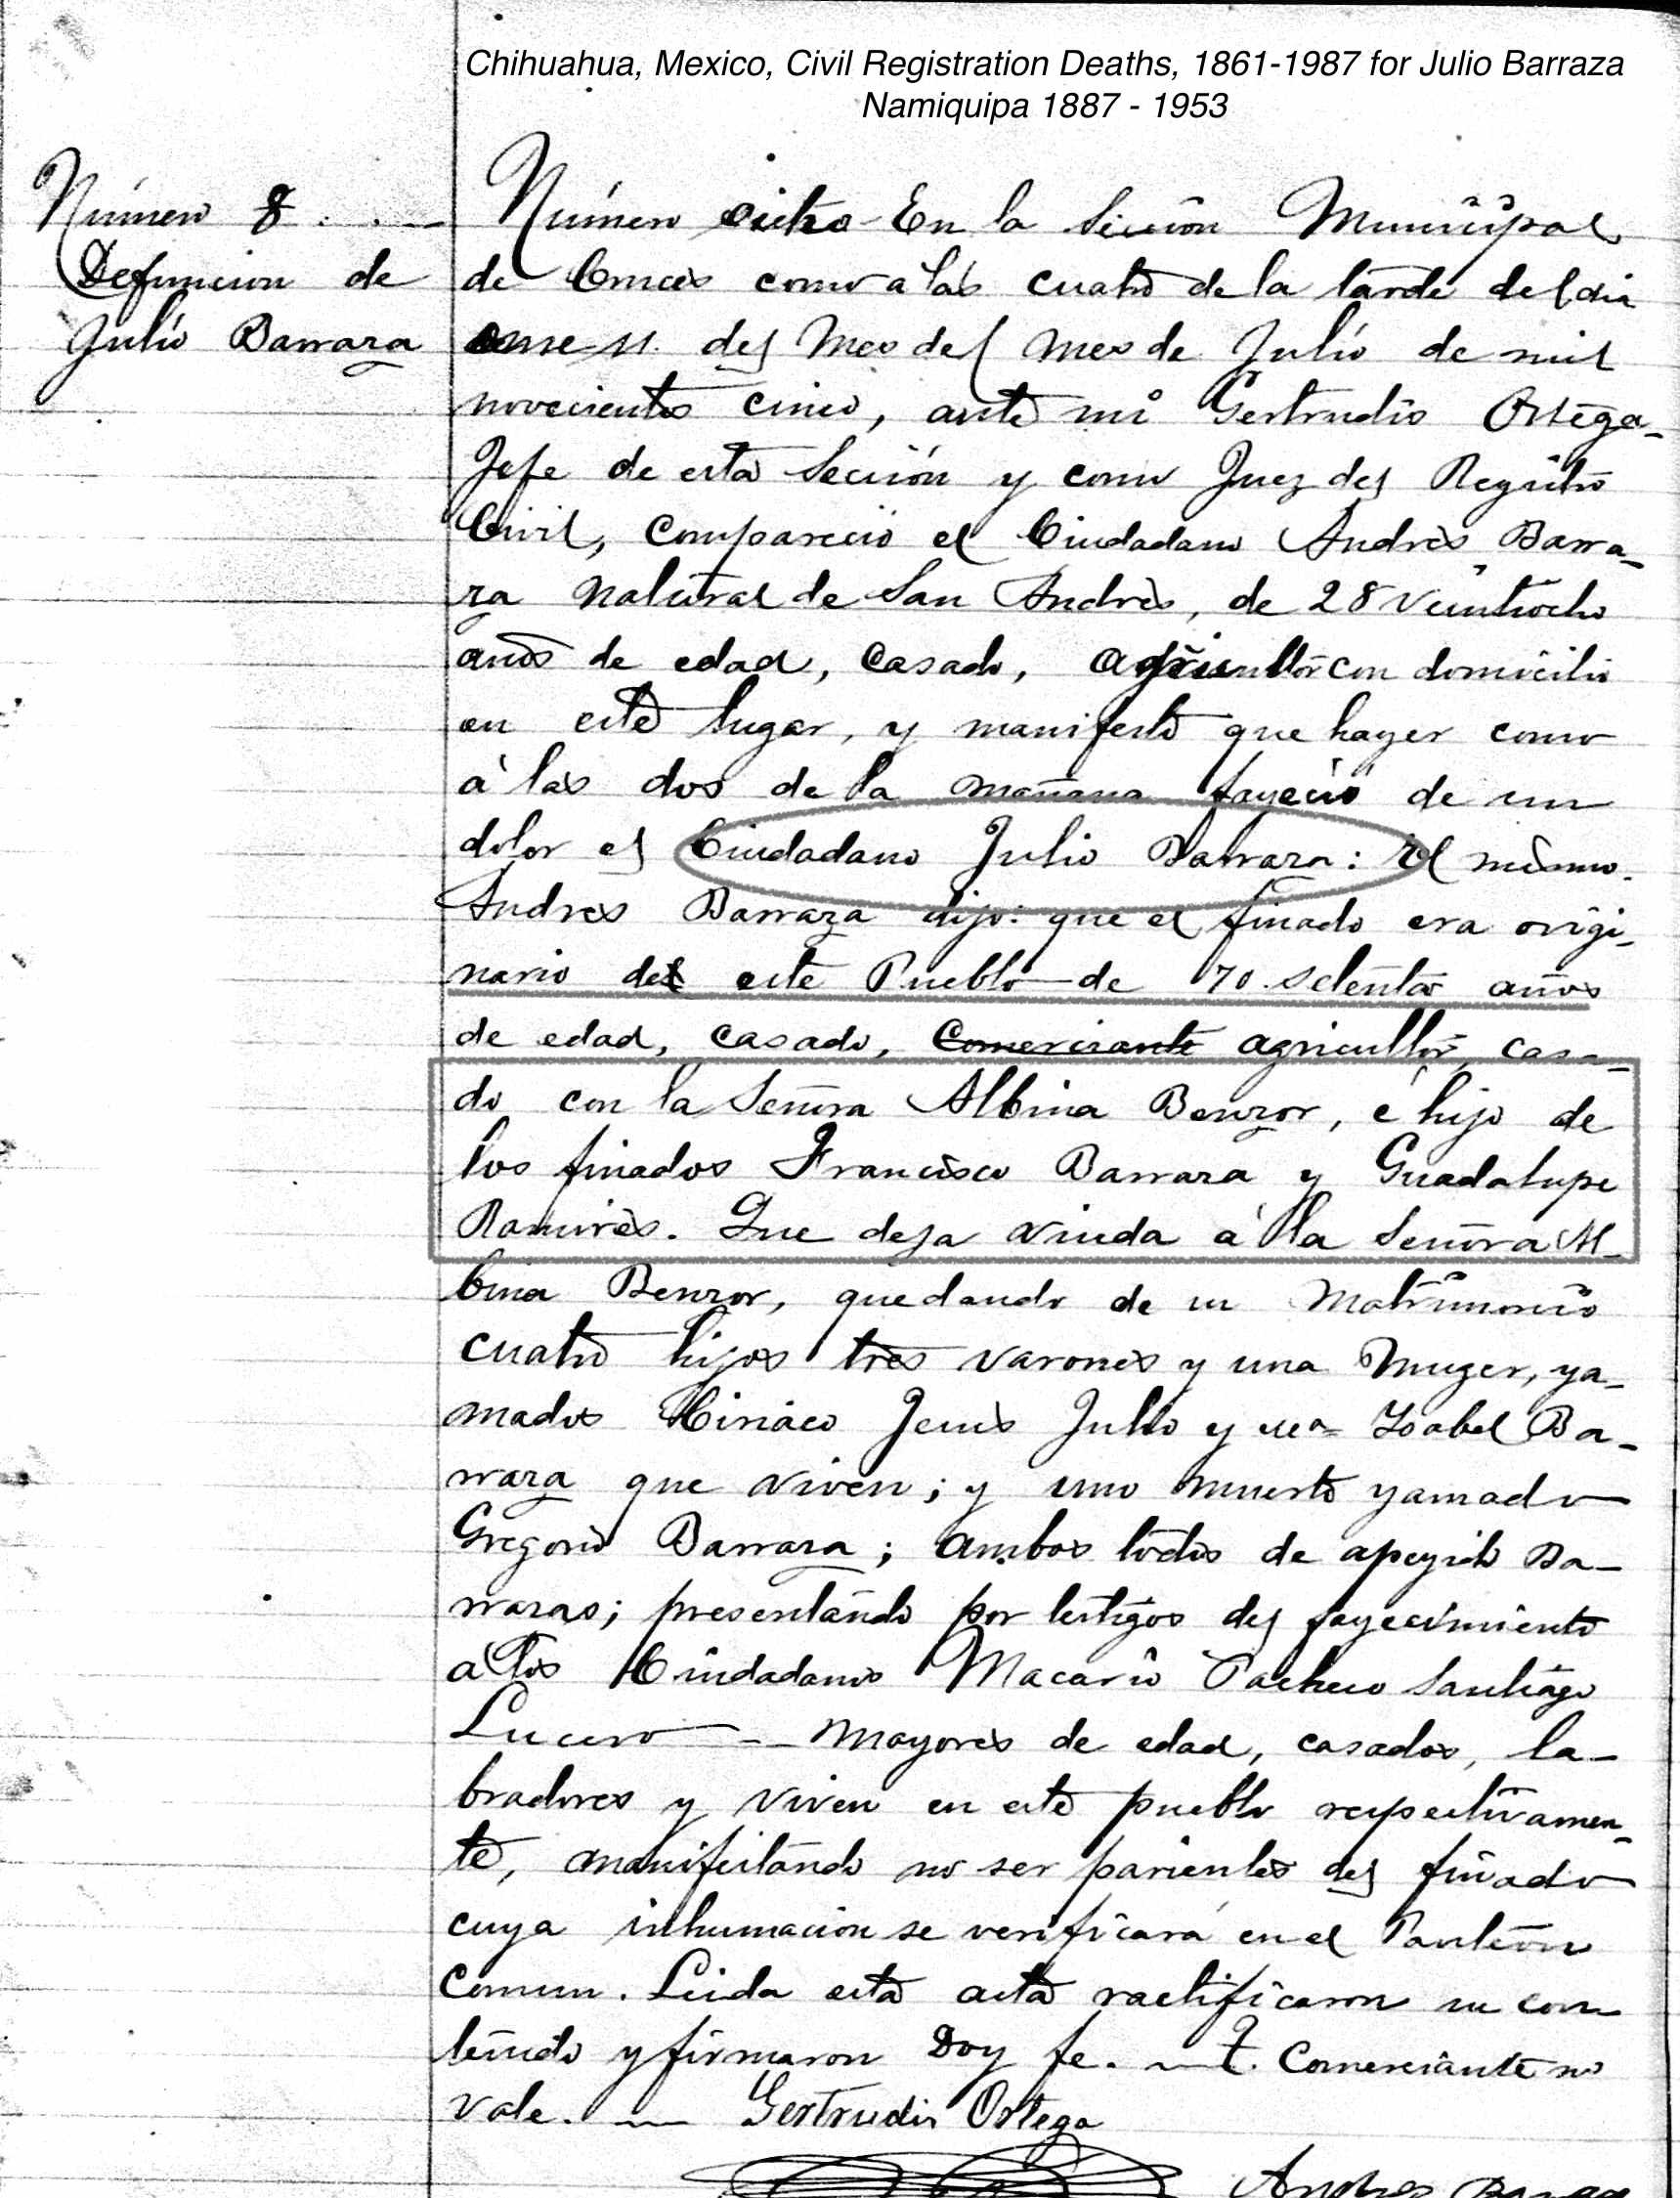 Chihuahua, Mexico, Civil Registration Deaths, 1861-1987 for Julio Barraza
Namiquipa 1887 - 1953
Número 8
Defuncion de
Julio Barraza
Número ocho - En la Sección Municipal
de Cruces como a las cuatro de la tarde del dia
onse 11. del Mes del mes de Julio de mil
novecientos cinco, ante mi Gertrudis Ortega
Jefe de esta Sección y como Juez del Registro
Civil, compareció el Ciudadano Andrès Barra-
za natural de San Andrès, de 28 veintiocho
años de edad, casado, agricultor con domicilio
en este lugar, y manifestó que hayer como
à las dos de la mañana fayeció de un
dolor el Ciudadano Julio Barraza: El mismo
Andres Barraza dijo: que el finado era origi-
nario del este Pueblo de 70 setenta años
de edad, casado, Comerciante agricultor, casa-
do con la Señora Albina Benzor, é hijo de
los finados Francisco Barraza y Guadalupe
Ramirès. Que deja viuda á la Señora Al-
bina Benzor, quedando de su Matrimonio
cuatro hijos tres varones y una Muger, ya-
mados Ciriaco Jesus Julio y Ma Ysabel Ba-
rraza que viven; y uno muerto yamado
Gregorio Barraza; ambos todos de apeyido Ba-
rrazas; presentando por testigos del fayecimiento
a los Ciudadanos Macario Pacheco Santiago
Lucero -- Mayores de edad, casados, la-
bradores y viven en este pueblo respectivamen-
te, manifestando no ser parientes del finado
cuya inhumacion se verificará en el Panteon
Comun. Leida esta acta ractificaron su con
tenido y firmaron Doy fe. - T. Comerciante no
vale. - Gertrudis Ortega
Andres Barraza